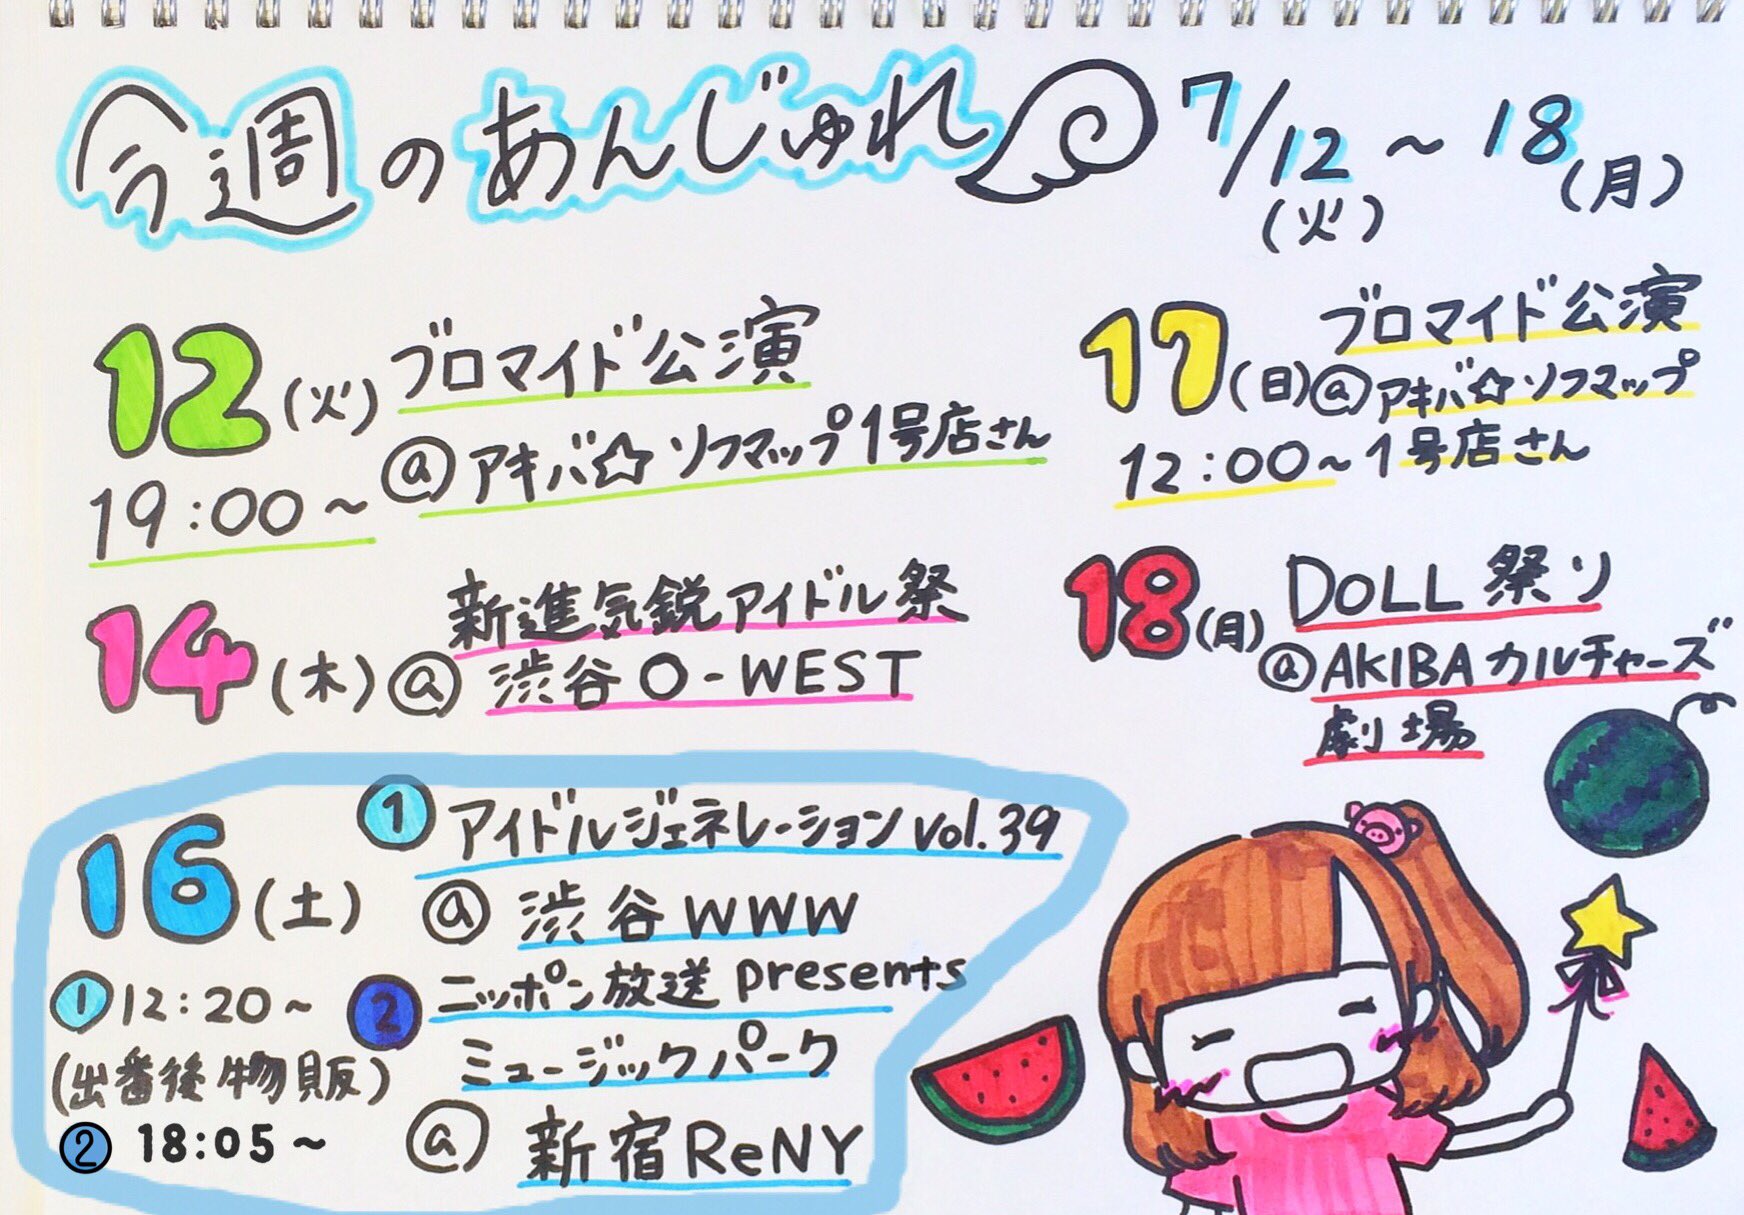 今週のあんじゅれ 7/12~18
(火) (月)
12(火) ブロマイド公演
@アキバ☆ソフマップ1号店さん
19:00~
14(木) 新進気鋭アイドル祭
@渋谷O-WEST
16(土) ①アイドルジェネレーションvol.39
@渋谷WWW
①12:20~
(出番後物販)
②ニッポン放送presents
ミュージックパーク
②18:05~
@新宿ReNY
17(日) ブロマイド公演
@アキバ☆ソフマップ
12:00~ 1号店さん
18(月) DOLL祭り
@AKIBAカルチャーズ
劇場